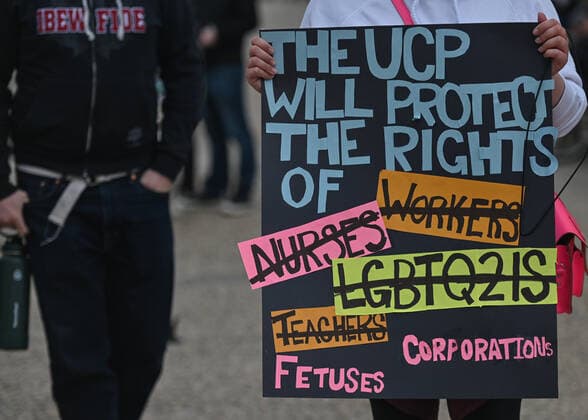 IBEW FIDE
THE UCP
WILL PROTECT
THE RIGHTS
OF
WORKERS
NURSES
LGBTQ2IS
TEACHERS
CORPORATIONS
FETUSES